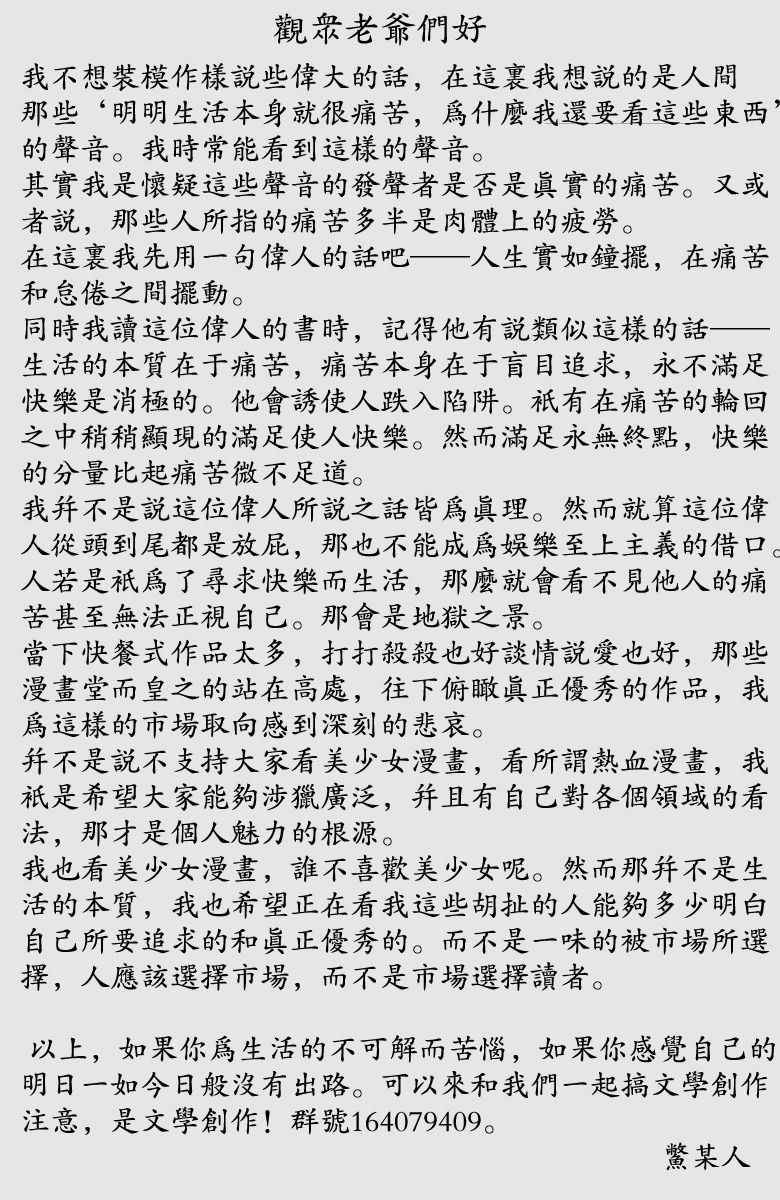 觀眾老爺們好
我不想裝模作樣說些偉大的話，在這裏我想說的是人間
那些‘明明生活本身就很痛苦，爲什麼我還要看這些東西’
的聲音。我時常能看到這樣的聲音。
其實我是懷疑這些聲音的發聲者是否是眞實的痛苦。又或
者説，那些人所指的痛苦多半是肉體上的疲勞。
在這裏我先用一句偉人的話吧——人生實如鐘擺，在痛苦
和怠倦之間擺動。
同時我讀這位偉人的書時，記得他有説類似這樣的話——
生活的本質在于痛苦，痛苦本身在于盲目追求，永不滿足
快樂是消極的。他會誘使人跌入陷阱。衹有在痛苦的輪回
之中稍稍顯現的滿足使人快樂。然而滿足永無終點，快樂
的分量比起痛苦微不足道。
我幷不是説這位偉人所説之話皆爲眞理。然而就算這位偉
人從頭到尾都是放屁，那也不能成爲娛樂至上主義的借口。
人若是衹爲了尋求快樂而生活，那麼就會看不見他人的痛
苦甚至無法正視自己。那會是地獄之景。
當下快餐式作品太多，打打殺殺也好談情説愛也好，那些
漫畫堂而皇之的站在高處，往下俯瞰眞正優秀的作品，我
爲這樣的市場取向感到深刻的悲哀。
幷不是説不支持大家看美少女漫畫，看所謂熱血漫畫，我
衹是希望大家能夠涉獵廣泛，幷且有自己對各個領域的看
法，那才是個人魅力的根源。
我也看美少女漫畫，誰不喜歡美少女呢。然而那幷不是生
活的本質，我也希望正在看我這些胡扯的人能夠多少明白
自己所要追求的和眞正優秀的。而不是一味的被市場所選
擇，人應該選擇市場，而不是市場選擇讀者。
以上，如果你爲生活的不可解而苦惱，如果你感覺自己的
明日一如今日般沒有出路。可以來和我們一起搞文學創作
注意，是文學創作！群號164079409。
鱉某人